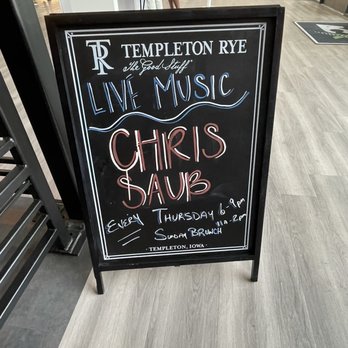 TR TEMPLETON RYE
"The Good Stuff"
LIVE MUSIC
CHRIS
SAUB
EVERY THURSDAY 6-9pm
SUNDAY BRUNCH 11a-2pm
· TEMPLETON, IOWA ·